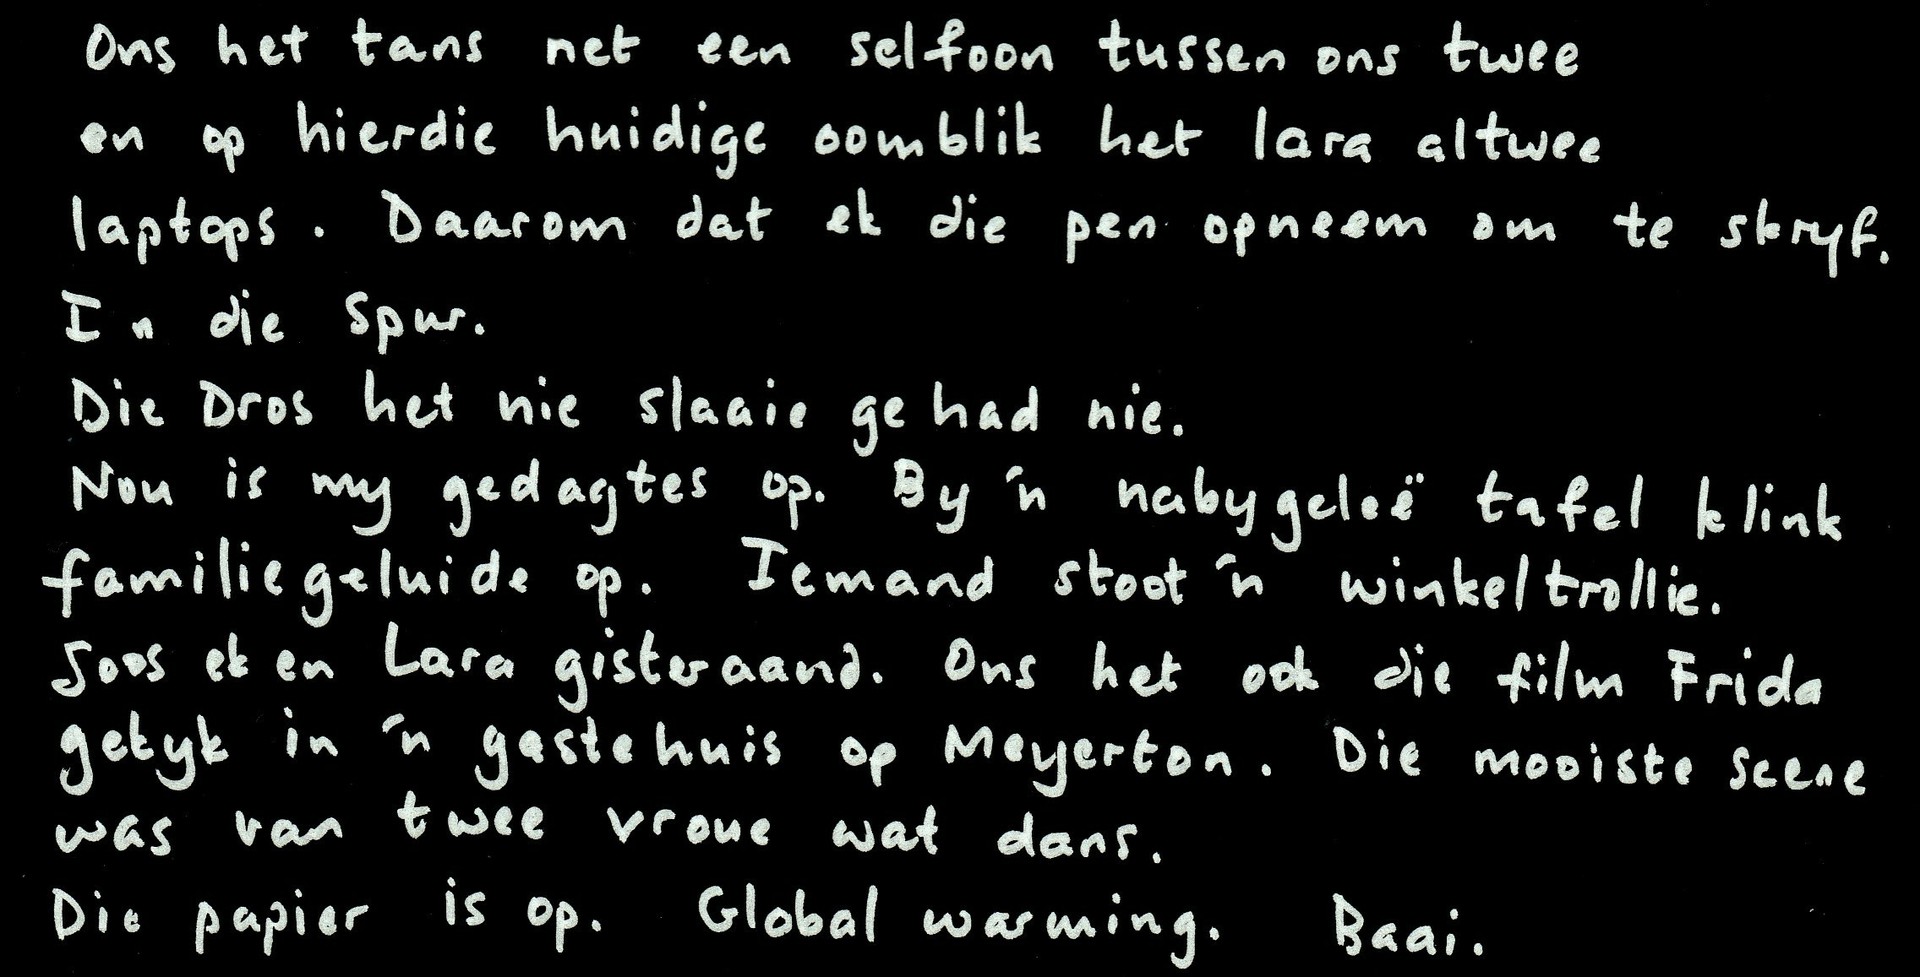 Ons het tans net een selfoon tussen ons twee
en op hierdie huidige oomblik het lara altwee
laptops. Daarom dat ek die pen opneem om te skryf.
In die Spur.
Die Dros het nie slaaie gehad nie.
Nou is my gedagtes op. By 'n nabygeleë tafel klink
familiegeluide op. Iemand stoot 'n winkeltrollie.
Soos ek en Lara gisteraand. Ons het ook die film Frida
gekyk in 'n gastehuis op Meyerton. Die mooiste scene
was van twee vroue wat dans.
Die papier is op. Global warming. Baai.